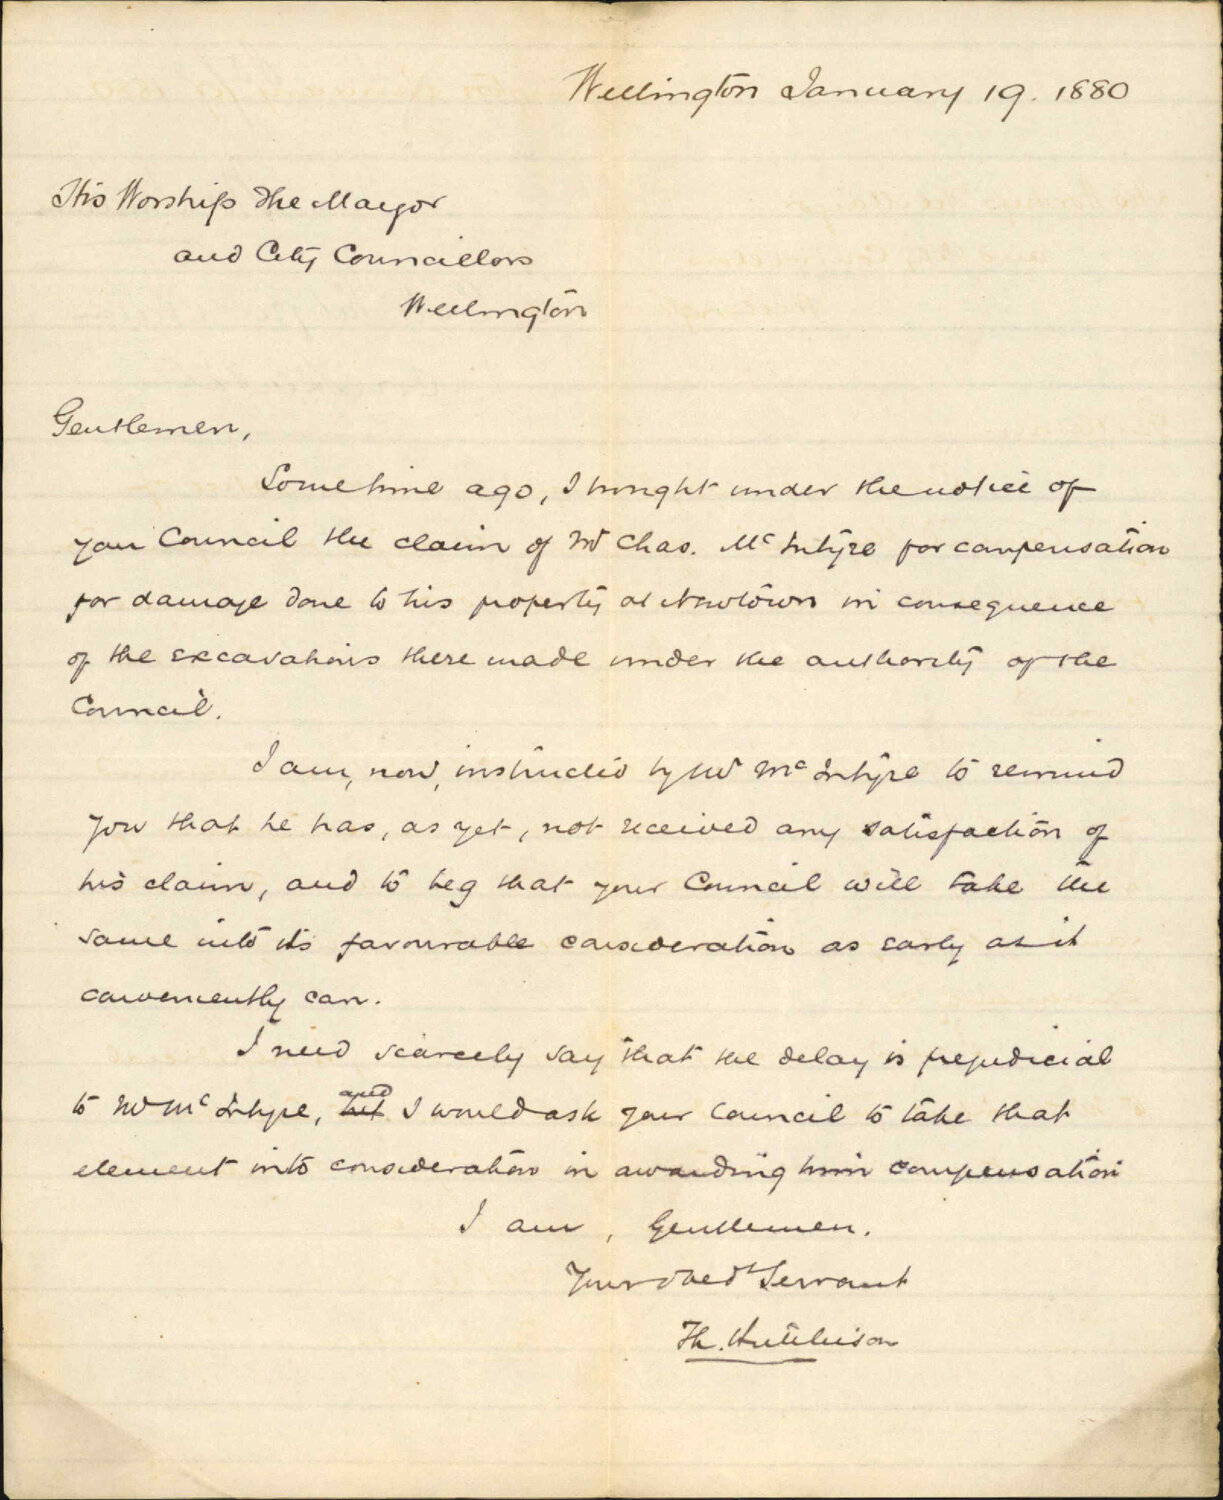 Wellington January 19. 1880
His Worship the Mayor
and City Councillors
Wellington
Gentlemen,
Some time ago, I brought under the notice of
your Council the claim of Mr Chas. McIntyre for compensation
for damage done to his property at Newtown in consequence
of the excavations there made under the authority of the
Council.
I am, now, instructed by Mr McIntyre to remind
you that he has, as yet, not received any satisfaction of
his claim, and to beg that your Council will take the
same into its favourable consideration as early as it
conveniently can.
I need scarcely say that the delay is prejudicial
to Mr McIntyre, and I would ask your Council to take that
element into consideration in awarding him compensation
I am, Gentlemen.
Your obedt Servant
Th. Hutchison